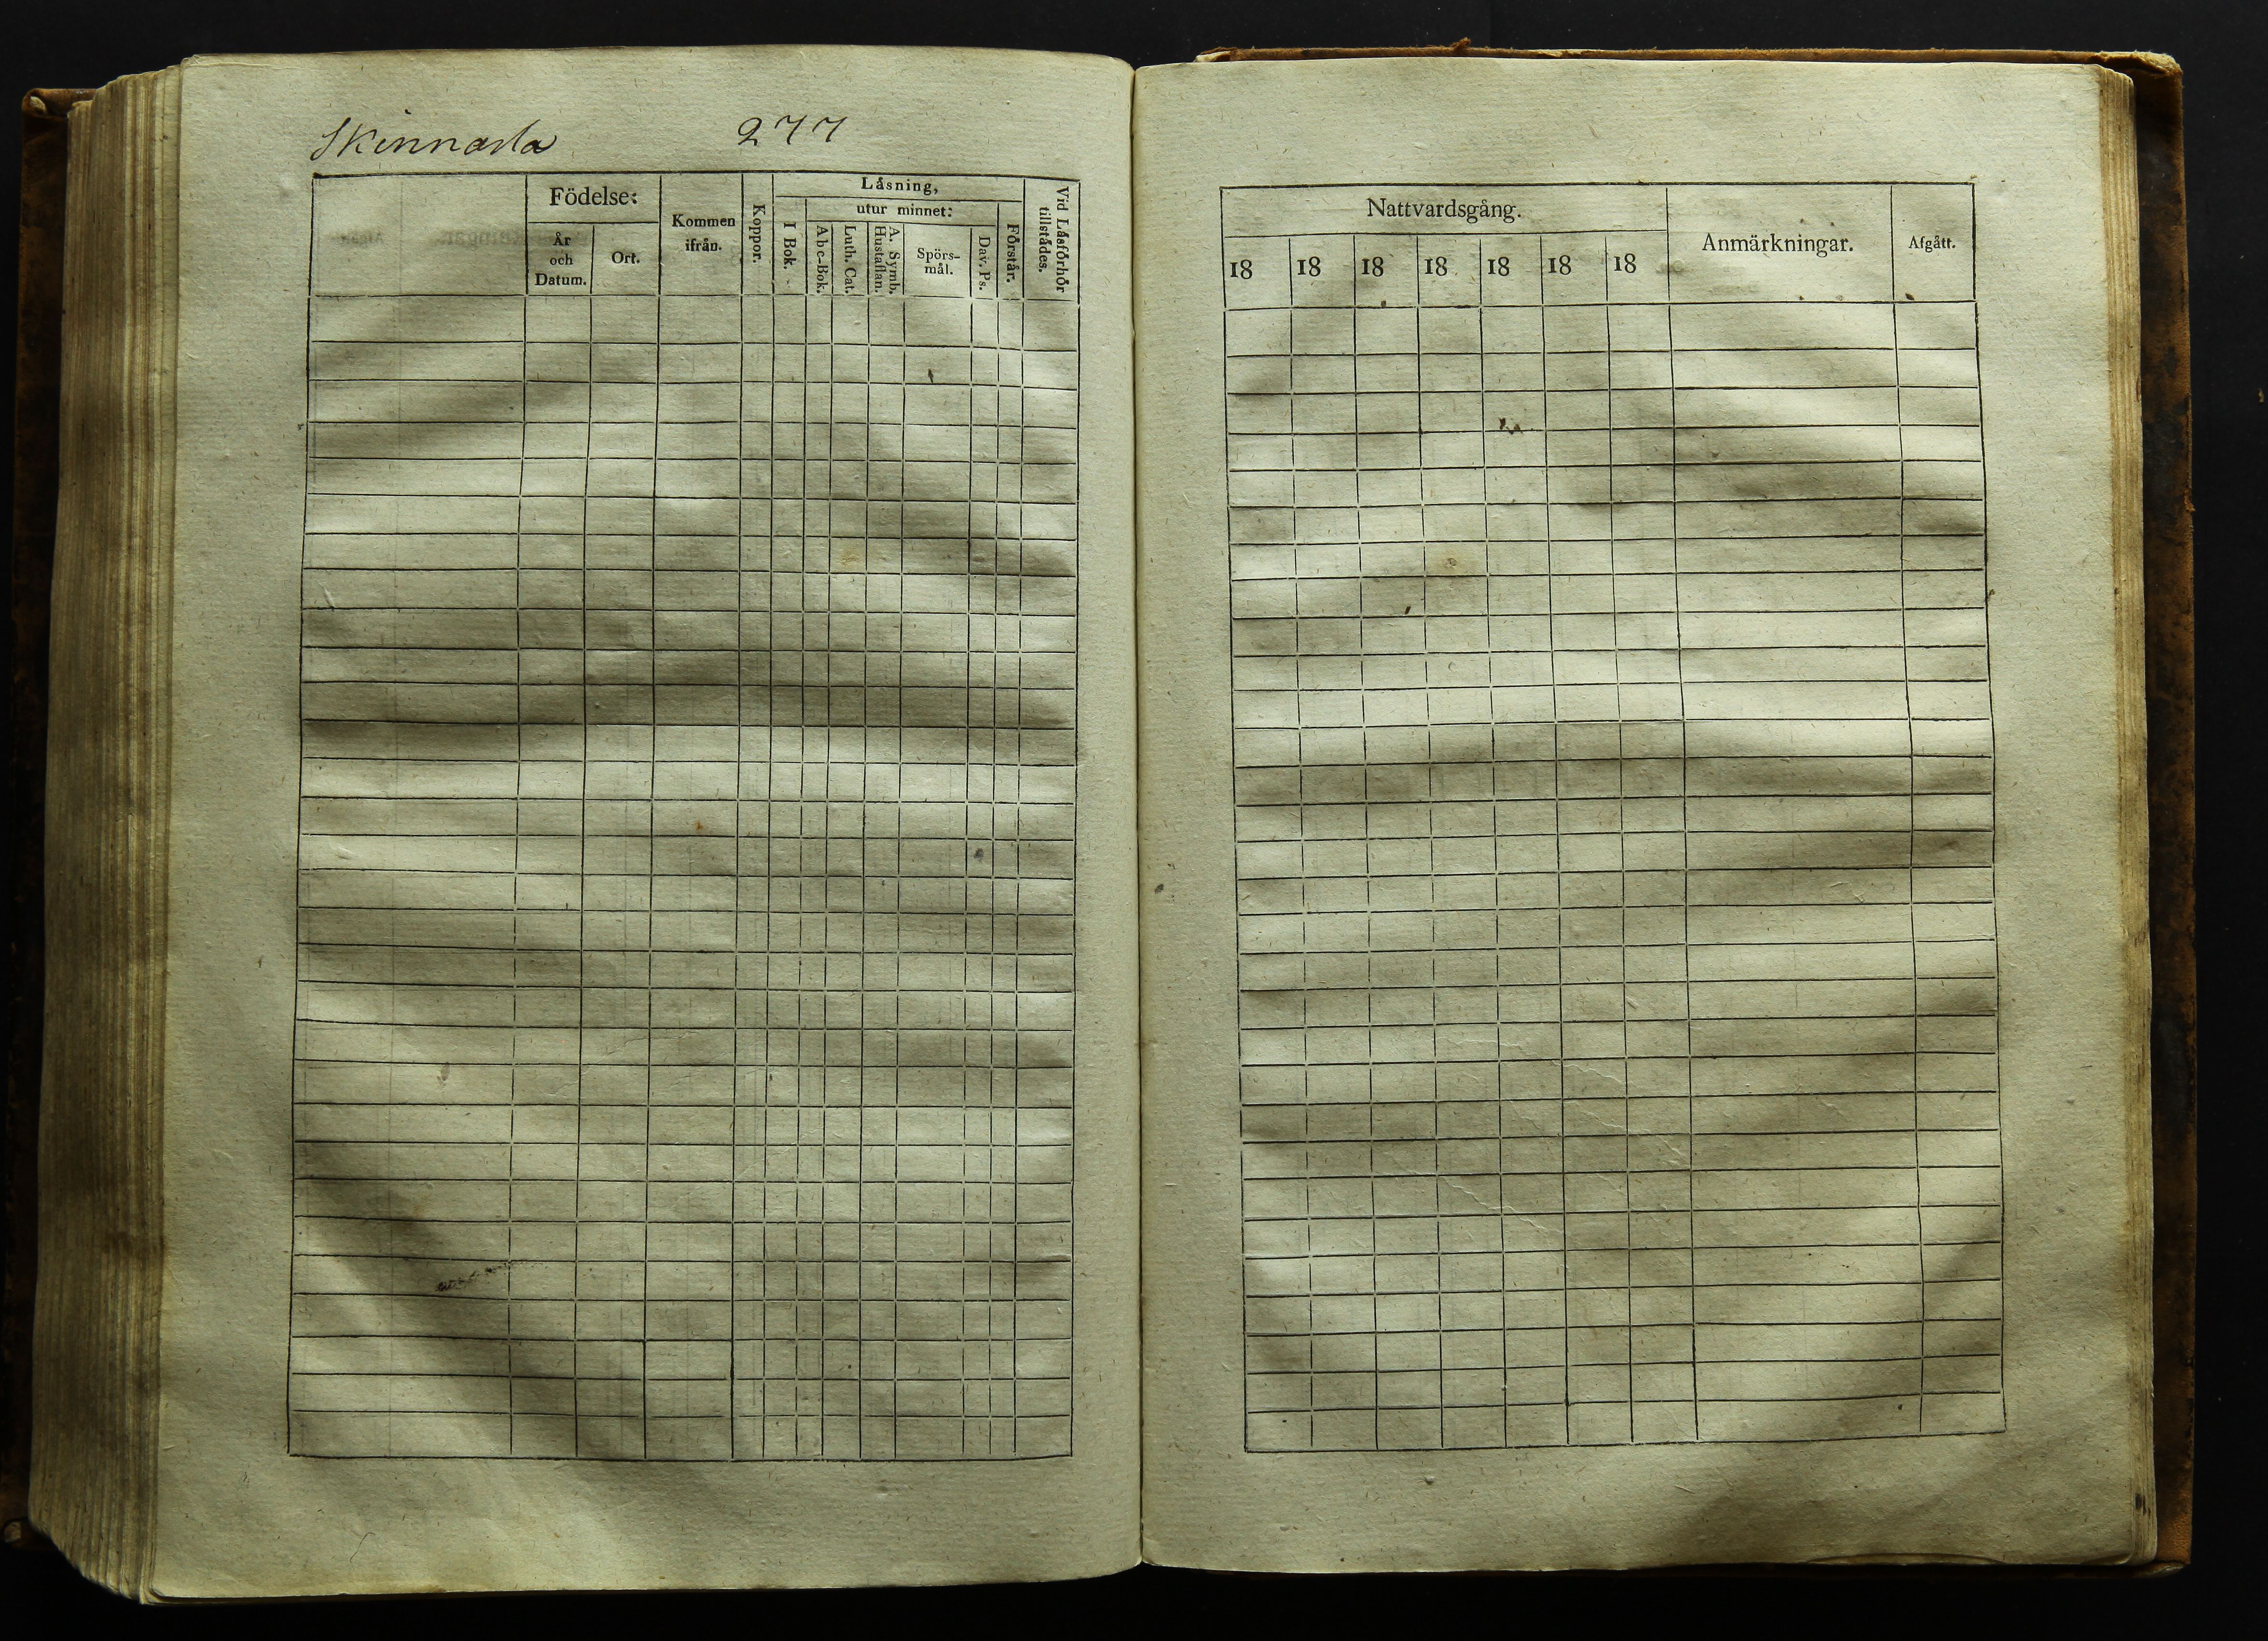 Skinnarla 277
Födelse: Kommen ifrån. Koppor. Låsning, Vid Låsförhör tillstådes.
År och Datum. Ort. I Bok. utur minnet: Förstår.
Abc-Bok. Luth. Cat. A. Symb. Hustaflan. Spörs-mål. Dav. Ps.
Nattvardsgång. Anmärkningar. Afgått.
18 18 18 18 18 18 18